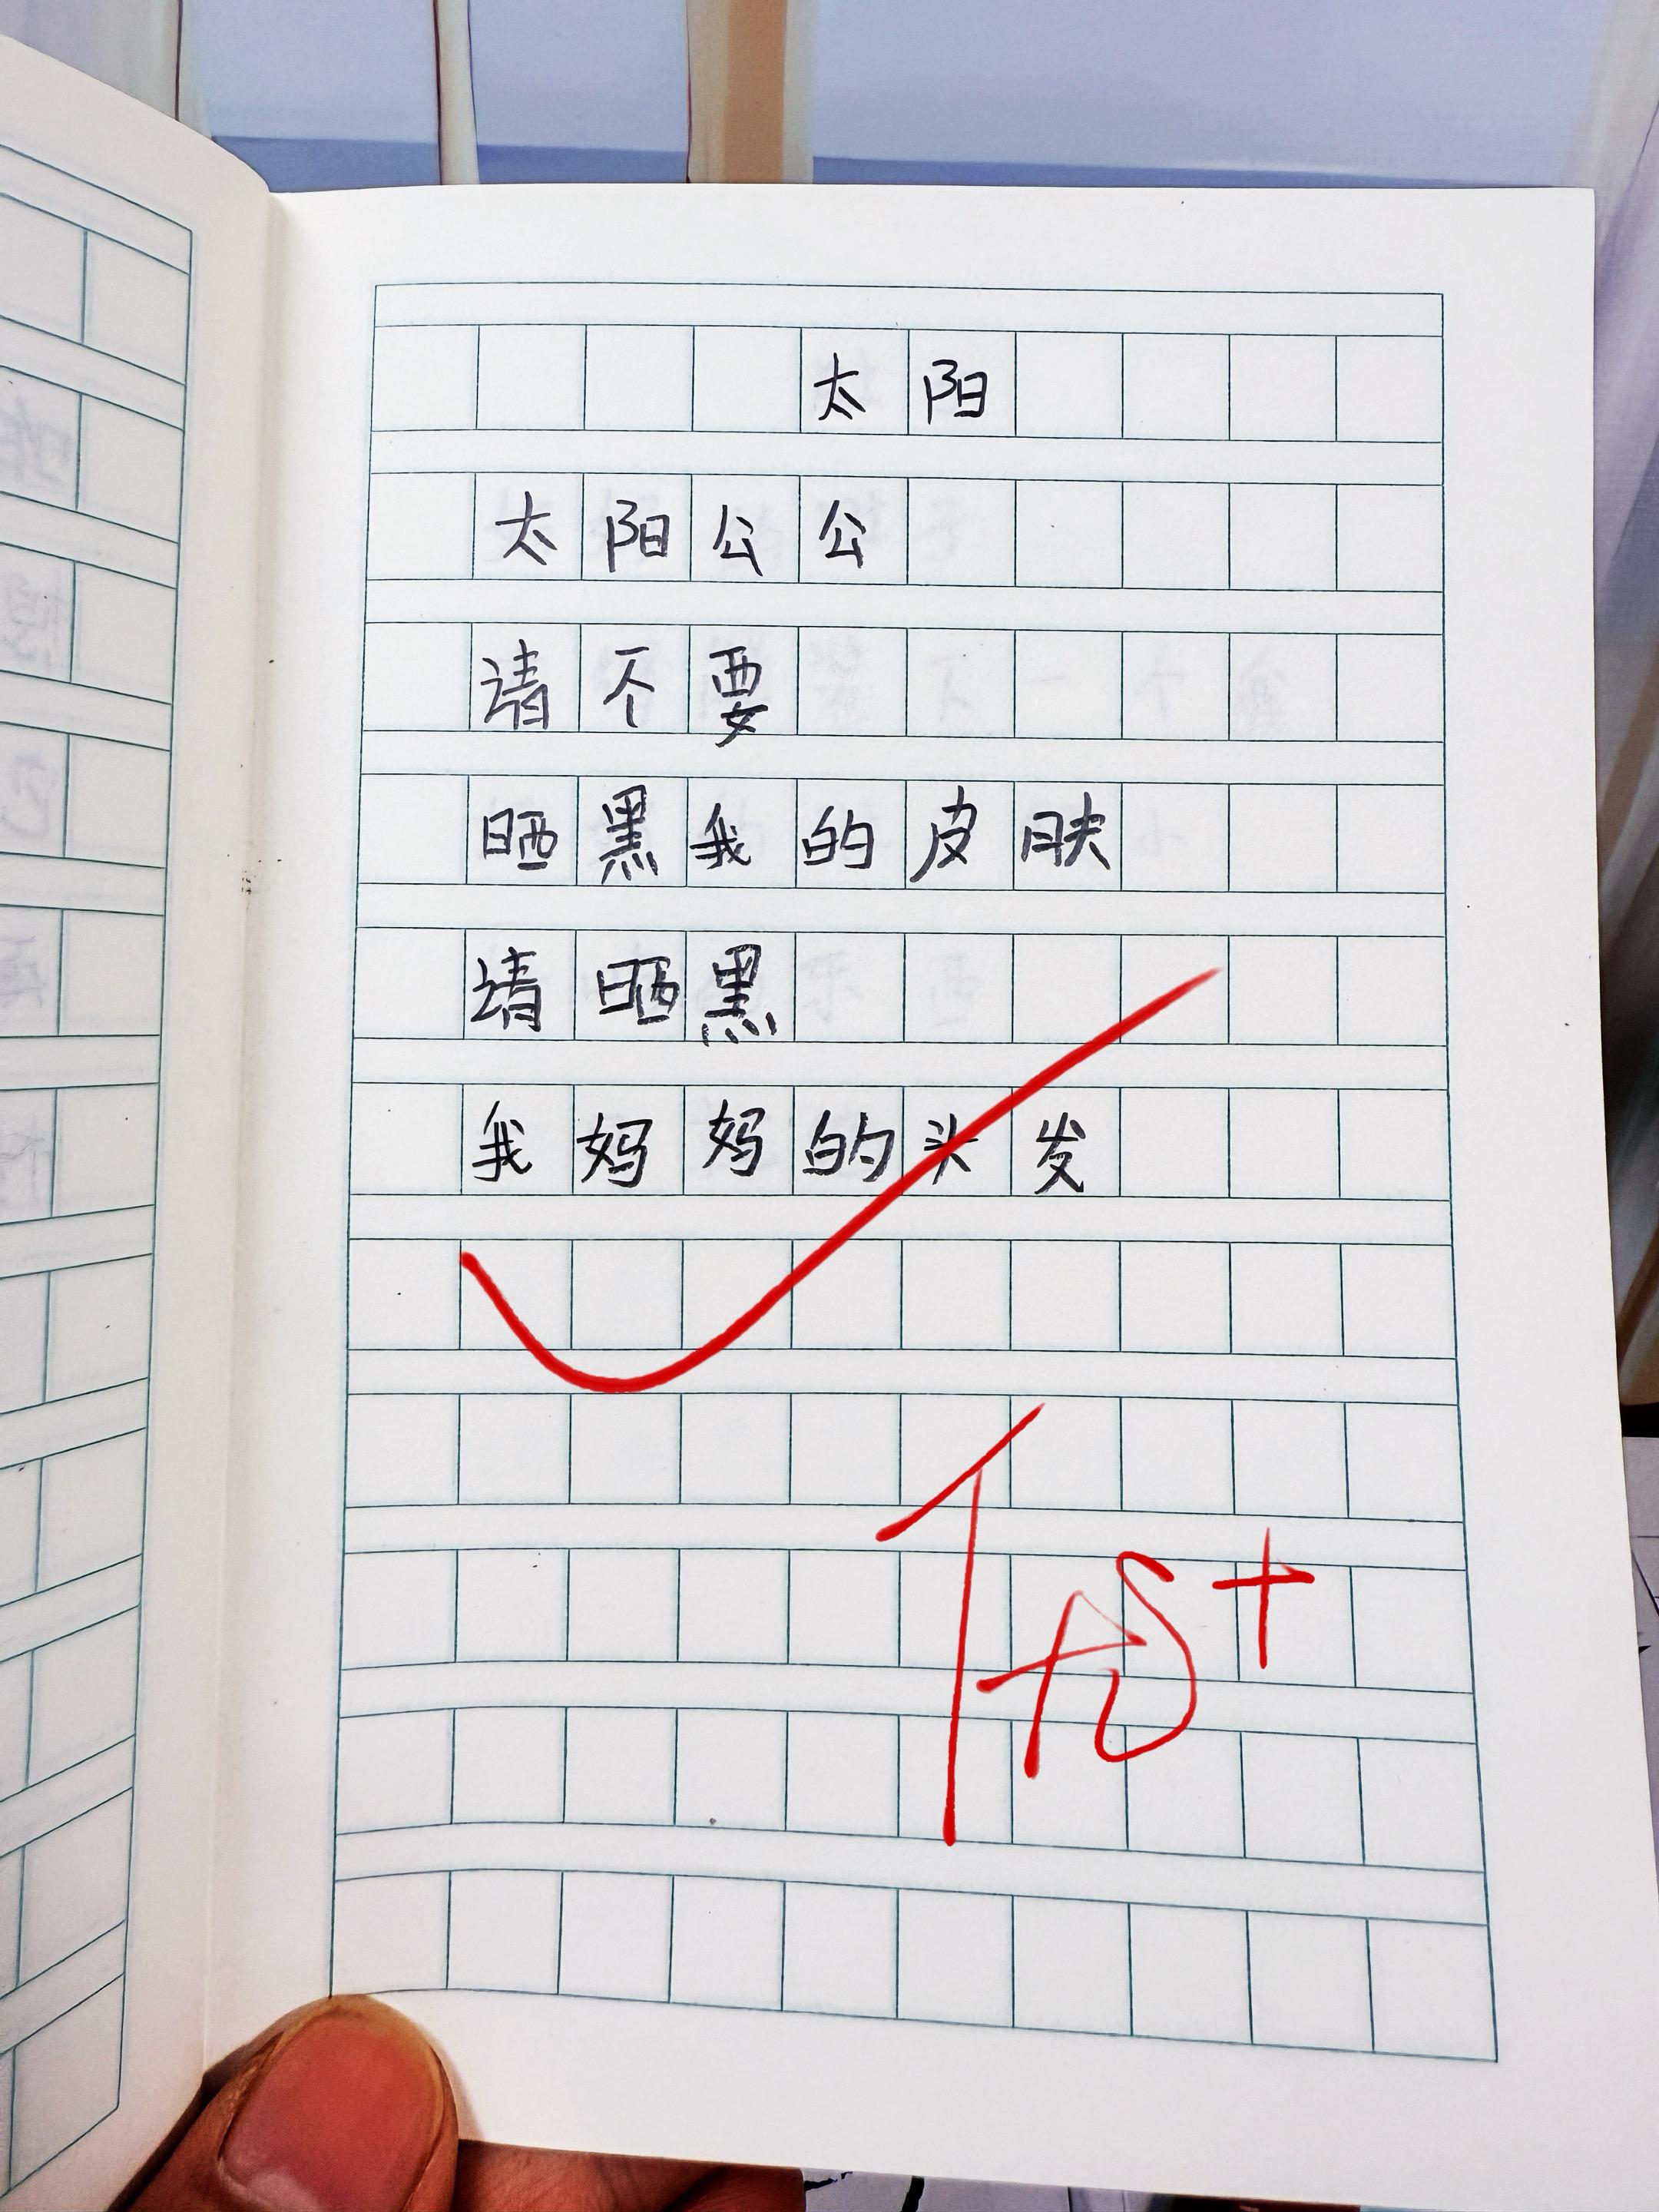 太阳
太阳公公
请不要
晒黑我的皮肤
请晒黑
我妈妈的头发